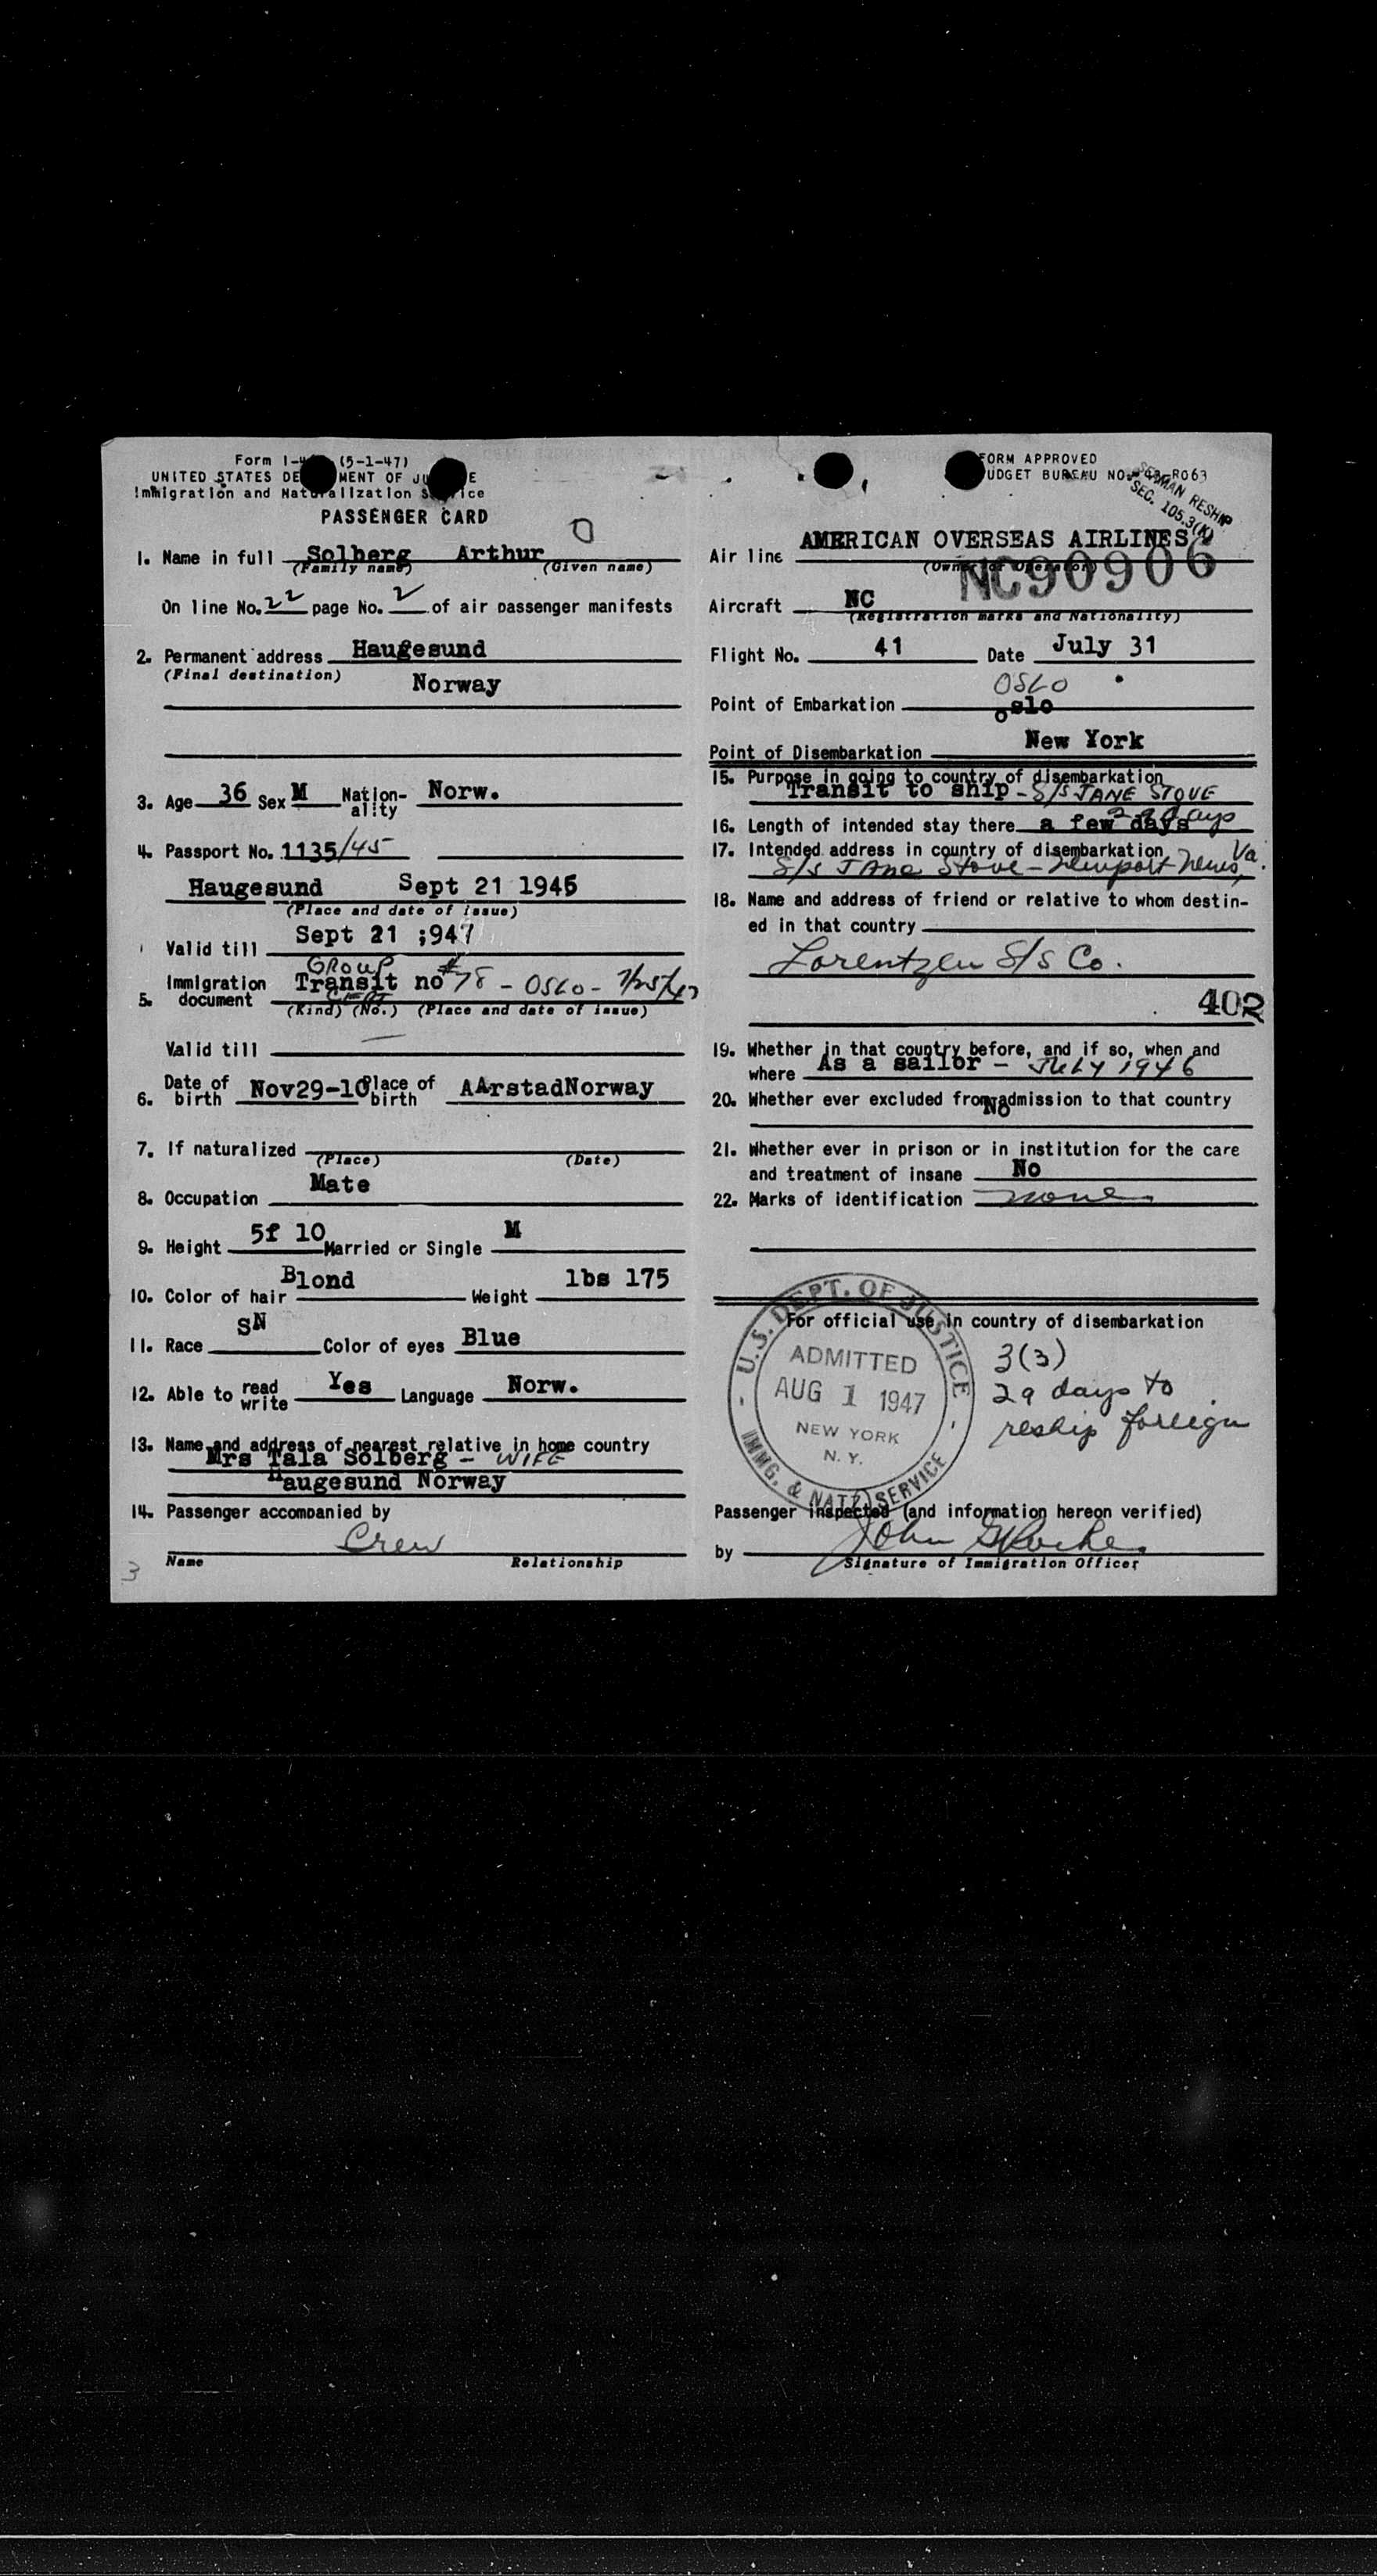 Form I- (5-1-47)
UNITED STATES DE MENT OF JU E
Immigration and Naturalization S ice
PASSENGER CARD
O
1. Name in full Solberg Arthur
(Family name) (Given name)
On line No. 22 page No. 2 of air passenger manifests
2. Permanent address Haugesund
(Final destination)
Norway
3. Age 36 Sex M Nation-ality Norw.
4. Passport No. 1135/45
Haugesund Sept 21 1945
(Place and date of issue)
Valid till Sept 21 ;947
GROUP
5. Immigration document Transit no #78 - OSLO - 7/25/47
(Kind) (No.) (Place and date of issue)
Valid till
6. Date of birth Nov29-10 Place of birth AArstadNorway
7. If naturalized
(Place) (Date)
8. Occupation Mate
9. Height 5f 10 Married or Single M
10. Color of hair Blond Weight lbs 175
11. Race SN Color of eyes Blue
12. Able to read write Yes Language Norw.
13. Name and address of nearest relative in home country
Mrs Tala Solberg - WIFE
Haugesund Norway
14. Passenger accompanied by
Crew
Name Relationship
3
FORM APPROVED
UDGET BUREAU NO. R063
RESHIP
SEC. 105.3(K)
Air line AMERICAN OVERSEAS AIRLINES
(Owner or Operator)
NC90906
Aircraft NC
(Registration marks and Nationality)
Flight No. 41 Date July 31
OSLO
Point of Embarkation oslo
Point of Disembarkation New York
15. Purpose in going to country of disembarkation
Transit to ship - S/S JANE STOVE
16. Length of intended stay there a few days
17. Intended address in country of disembarkation
S/S Jane Stove - Newport News, Va.
18. Name and address of friend or relative to whom destin-
ed in that country
Lorentzen S/S Co.
402
19. Whether in that country before, and if so, when and
where As a sailor - JULY 1946
20. Whether ever excluded from admission to that country
No
21. Whether ever in prison or in institution for the care
and treatment of insane No
22. Marks of identification none
For official use in country of disembarkation
U.S. DEPT. OF JUSTICE
ADMITTED
AUG 1 1947
NEW YORK
N. Y.
IMMG. & NATZ. SERVICE
3(3)
29 days to
reship foreign
Passenger inspected (and information hereon verified)
by John
Signature of Immigration Officer